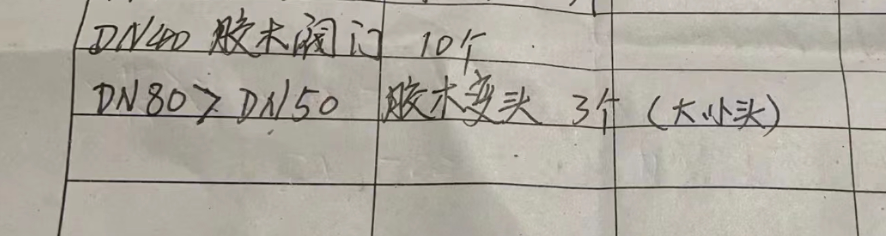 DN40 胶木阀门 10个
DN80>DN50 胶木变头 3个 (大小头)